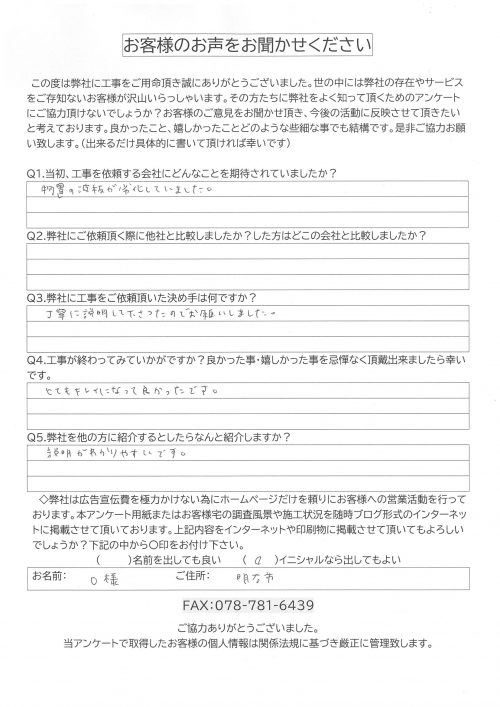 お客様のお声をお聞かせください
この度は弊社に工事をご用命頂き誠にありがとうございました。世の中には弊社の存在やサービス
をご存知ないお客様が沢山いらっしゃいます。その方たちに弊社をよく知って頂くためのアンケート
にご協力頂けないでしょうか？お客様のご意見をお聞かせ頂き、今後の活動に反映させて頂きたい
と考えております。良かったこと、嬉しかったことどのような些細な事でも結構です。是非ご協力お願
い致します。（出来るだけ具体的に書いて頂ければ幸いです）
Q1.当初、工事を依頼する会社にどんなことを期待されていましたか？
物置の波板が劣化していました。
Q2.弊社にご依頼頂く際に他社と比較しましたか？した方はどこの会社と比較しましたか？
Q3.弊社に工事をご依頼頂いた決め手は何ですか？
丁寧に説明して下さったのでお願いしました。
Q4.工事が終わってみていかがですか？良かった事・嬉しかった事を忌憚なく頂戴出来ましたら幸い
です。
とてもキレイになって良かったです。
Q5.弊社を他の方に紹介するとしたらなんと紹介しますか？
説明がわかりやすいです。
◇弊社は広告宣伝費を極力かけない為にホームページだけを頼りにお客様への営業活動を行って
おります。本アンケート用紙またはお客様宅の調査風景や施工状況を随時ブログ形式のインターネッ
トに掲載させて頂いております。上記内容をインターネットや印刷物に掲載させて頂いてもよろしい
でしょうか？下記の中から〇印をお付け下さい。
（　　）名前を出しても良い　（　〇　）イニシャルなら出してもよい
お名前：　O様　ご住所：　明石市
FAX：078-781-6439
ご協力ありがとうございました。
当アンケートで取得したお客様の個人情報は関係法規に基づき厳正に管理致します。